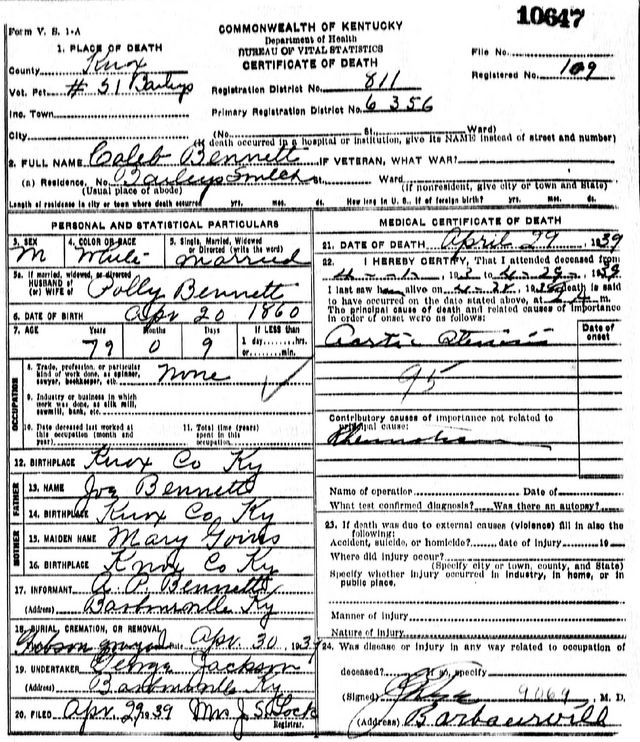 10647
Form V. S. 1-A
COMMONWEALTH OF KENTUCKY
Department of Health
BUREAU OF VITAL STATISTICS
CERTIFICATE OF DEATH
1. PLACE OF DEATH
County Knox
Vot. Pct. # 31 Baileys
Inc. Town
City
Registration District No. 811
Primary Registration District No. 6356
File No.
Registered No. 109
(No. St. Ward)
(If death occurred in a hospital or institution, give its NAME instead of street and number)
2. FULL NAME Caleb Bennett IF VETERAN, WHAT WAR?
(a) Residence, No. Baileys St. Ward
(Usual place of abode) (If nonresident, give city or town and State)
Length of residence in city or town where death occurred yrs. mos. ds. How long in U. S., if of foreign birth? yrs. mos. ds.
PERSONAL AND STATISTICAL PARTICULARS
3. SEX M
4. COLOR OR RACE
5. Single, Married, Widowed or Divorced (write the word) Married
5a. If married, widowed, or divorced
HUSBAND of
(or) WIFE of Polly Bennett
6. DATE OF BIRTH Apr 20 1860
7. AGE Years Months Days If LESS than
79 0 9 1 day, hrs.
or min.
OCCUPATION
8. Trade, profession, or particular kind of work done, as spinner, sawyer, bookkeeper, etc. None
9. Industry or business in which work was done, as silk mill, sawmill, bank, etc.
10. Date deceased last worked at this occupation (month and year)
11. Total time (years) spent in this occupation
12. BIRTHPLACE Knox Co Ky
FATHER
13. NAME Joe Bennett
14. BIRTHPLACE Knox Co. Ky
MOTHER
15. MAIDEN NAME Mary Goins
16. BIRTHPLACE Knox Co Ky
17. INFORMANT A. P. Bennett
(Address) Barbourville Ky
18. BURIAL, CREMATION, OR REMOVAL
Date Apr 30 1939
19. UNDERTAKER George Jackson
(Address) Barbourville Ky
20. FILED Apr. 29 1939 Mrs J. S. Lock
Registrar.
MEDICAL CERTIFICATE OF DEATH
21. DATE OF DEATH April 29, 1939
22. I HEREBY CERTIFY, That I attended deceased from
4-1-, 193 to 4-29-, 1939
I last saw h alive on 4-28, 193 death is said
to have occurred on the date stated above, at m.
The principal cause of death and related causes of importance
in order of onset were as follows:
Date of onset
Aortic Stenosis
95
Contributory causes of importance not related to principal cause:
Rheumatism
Name of operation Date of
What test confirmed diagnosis? Was there an autopsy?
23. If death was due to external causes (violence) fill in also the following:
Accident, suicide, or homicide? date of injury 19
Where did injury occur?
(Specify city or town, county, and State)
Specify whether injury occurred in industry, in home, or in public place.
Manner of injury
Nature of injury
24. Was disease or injury in any way related to occupation of
deceased? If so, specify
(Signed) M. D.
(Address) Barbourville